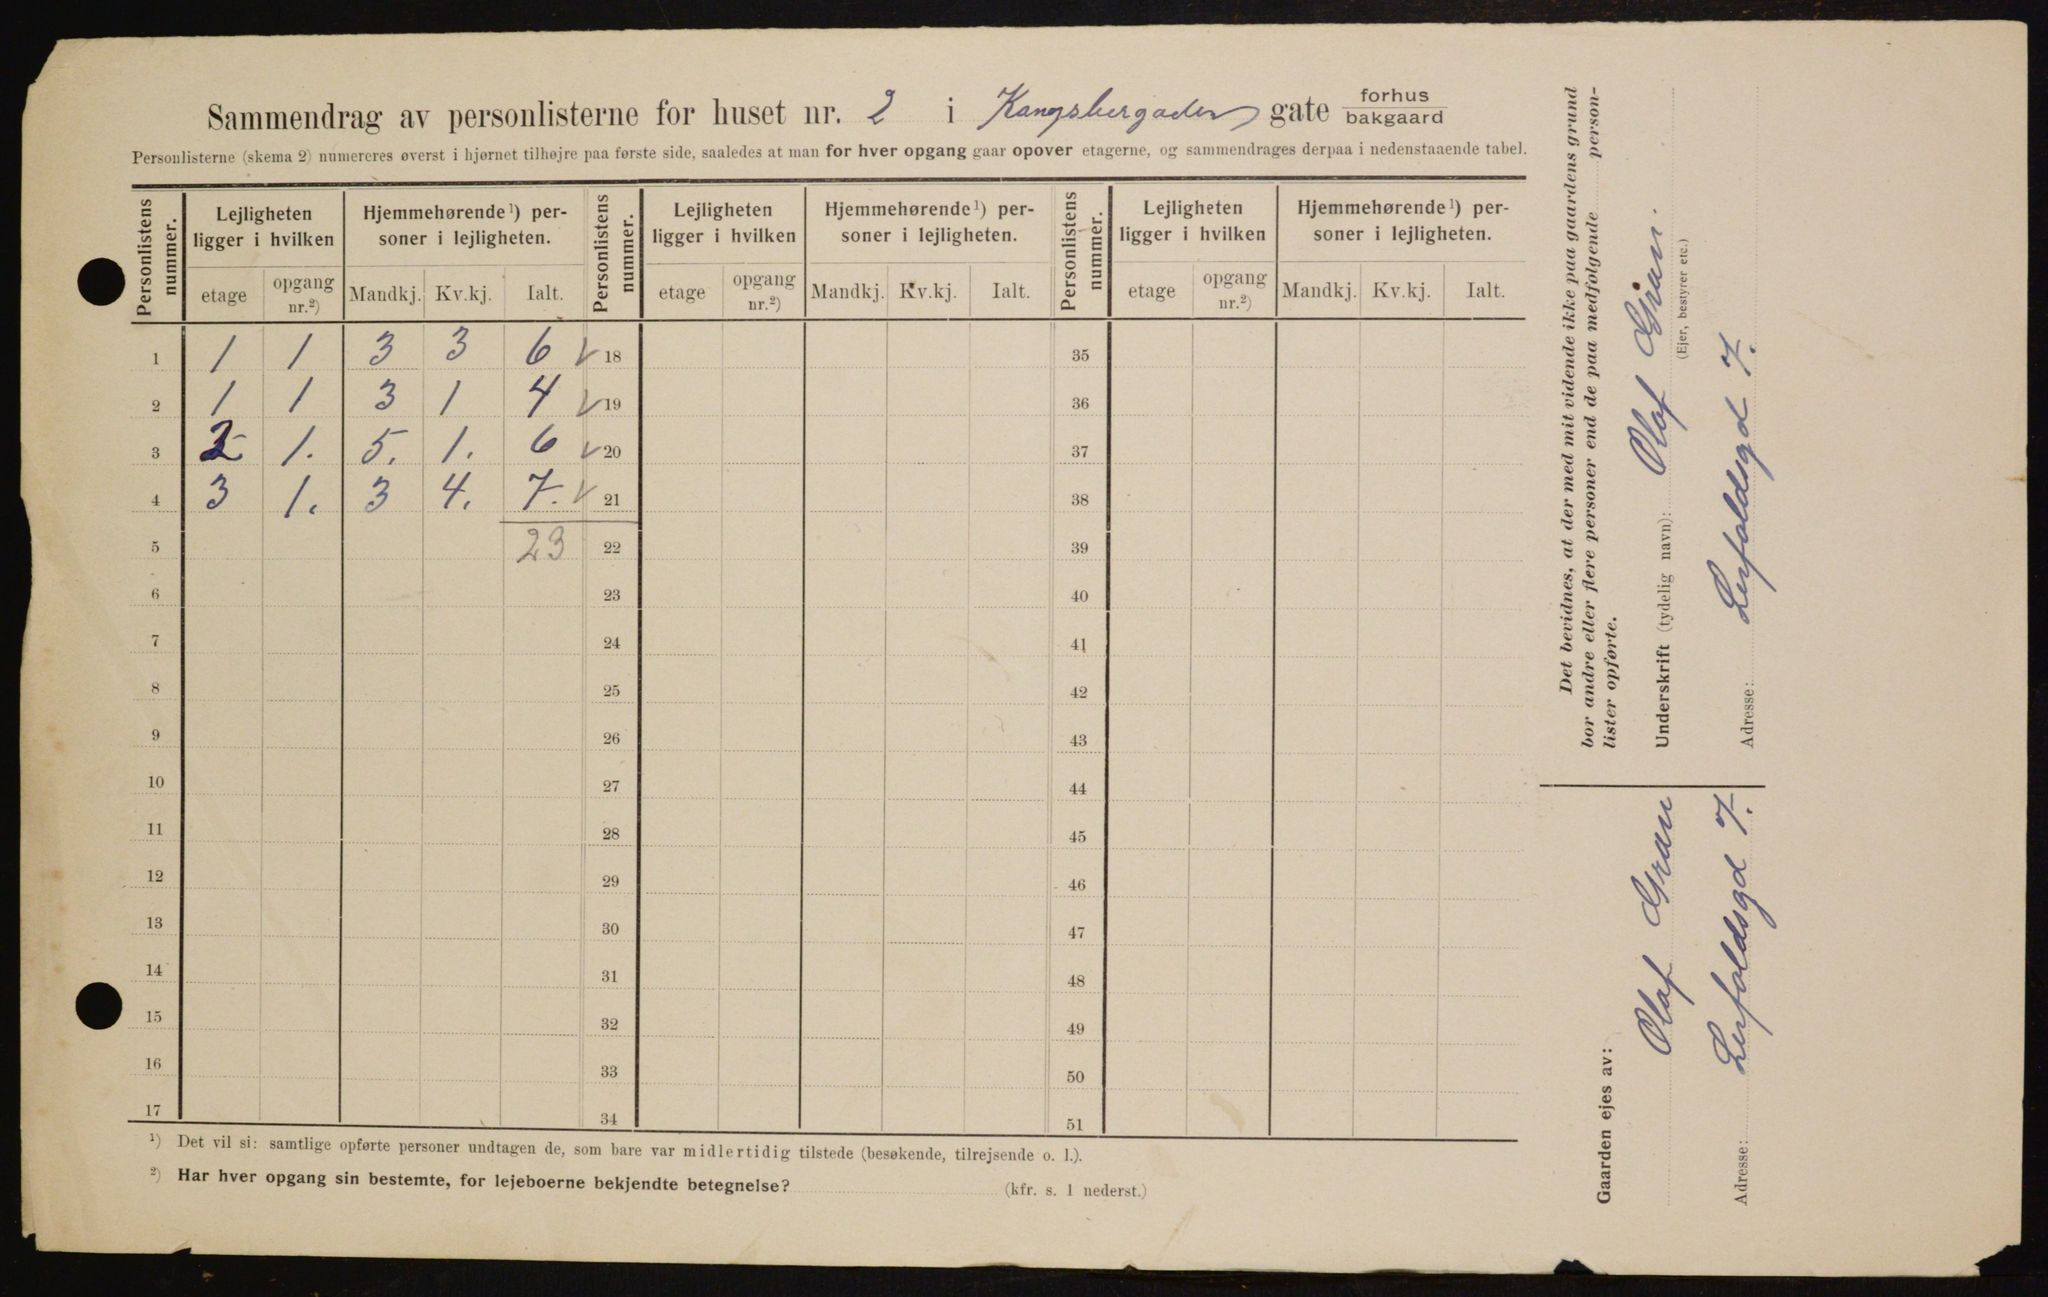 Sammendrag av personlisterne for huset nr. 2 i Kongsbergaden gate forhus
bakgaard
Personlisterne (skema 2) numereres øverst i hjørnet tilhøjre paa første side, saaledes at man for hver opgang gaar opover etagerne, og sammendrages derpaa i nedenstaaende tabel.
Personlistens nummer. Lejligheten ligger i hvilken Hjemmehørende¹) per- soner i lejligheten. Personlistens nummer. Lejligheten ligger i hvilken Hjemmehørende¹) per- soner i lejligheten. Personlistens nummer. Lejligheten ligger i hvilken Hjemmehørende¹) per- soner i lejligheten.
etage opgang nr.²) Mandkj. Kv.kj. Ialt. etage opgang nr.²) Mandkj. Kv.kj. Ialt. etage opgang nr.²) Mandkj. Kv.kj. Ialt.
1 1 1 3 3 6 ✓ 18 35
2 1 1 3 1 4 ✓ 19 36
3 2 1. 5. 1. 6 ✓ 20 37
4 3 1. 3 4. 7. ✓ 21 38
5 23 22 39
6 23 40
7 24 41
8 25 42
9 26 43
10 27 44
11 28 45
12 29 46
13 30 47
14 31 48
15 32 49
16 33 50
17 34 51
¹) Det vil si: samtlige opførte personer undtagen de, som bare var midlertidig tilstede (besøkende, tilrejsende o. l.).
²) Har hver opgang sin bestemte, for lejeboerne bekjendte betegnelse? (kfr. s. 1 nederst.)
Det bevidnes, at der med mit vidende ikke paa gaardens grund
bor andre eller flere personer end de paa medfølgende person-
lister opførte.
Underskrift (tydelig navn): Olaf Gran.
(Ejer, bestyrer etc.)
Adresse: Lerfoldsgd 7.
Gaarden ejes av:
Olaf Gran
Adresse: Lerfoldsgd 7.